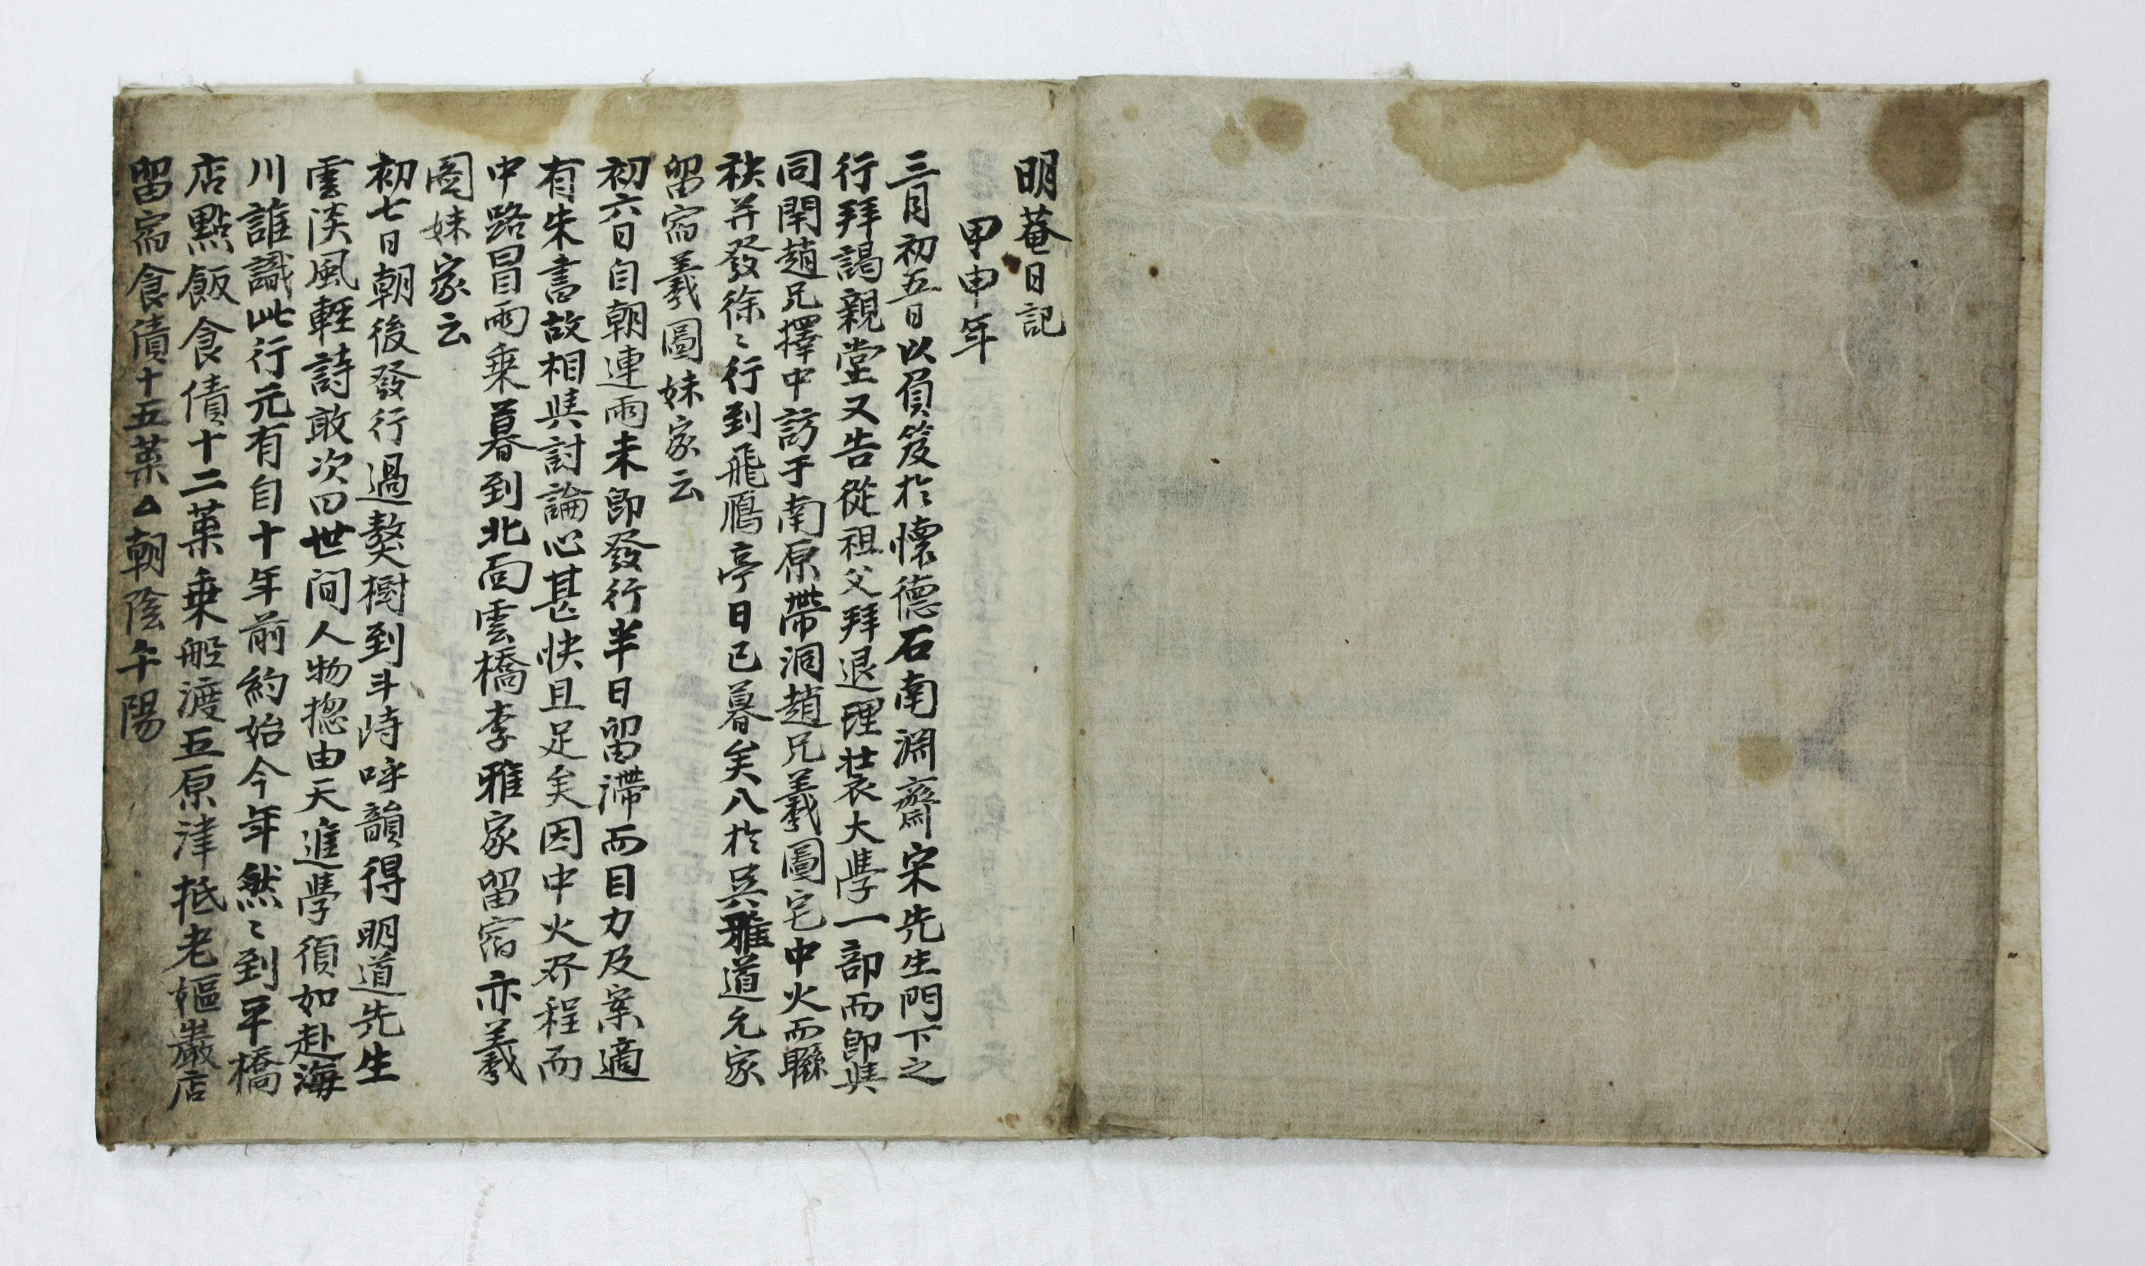 明菴日記
甲申年
三月初五日以負笈於懷德石南淵齋宋先生門下之
行拜謁親堂又告從祖父拜退理裝衣大學一部而卽與
同閈趙兄擇中訪于南原帶洞趙兄羲圖宅中火而聯
秧并發徐〻行到飛鴈亭日已暮矣入於吳雅道元家
留宿羲圖妹家云
初六日自朝連雨未卽發行半日留滯而目力及案適
有朱書故相與討論心甚快且足矣因中火登程而
中路冒雨乘暮到北面雲橋李雅家留宿亦羲
圖妹家云
初七日朝後發行過獒樹到斗峙呼韻得明道先生
雲淡風輕詩敢次曰世間人物摠由天進學須如赴海
川誰識此行元有自十年前約始今年然〻到平橋
店點飯食債十二葉乘船渡五原津抵老嫗巖店
留宿食債十五葉△朝陰午陽